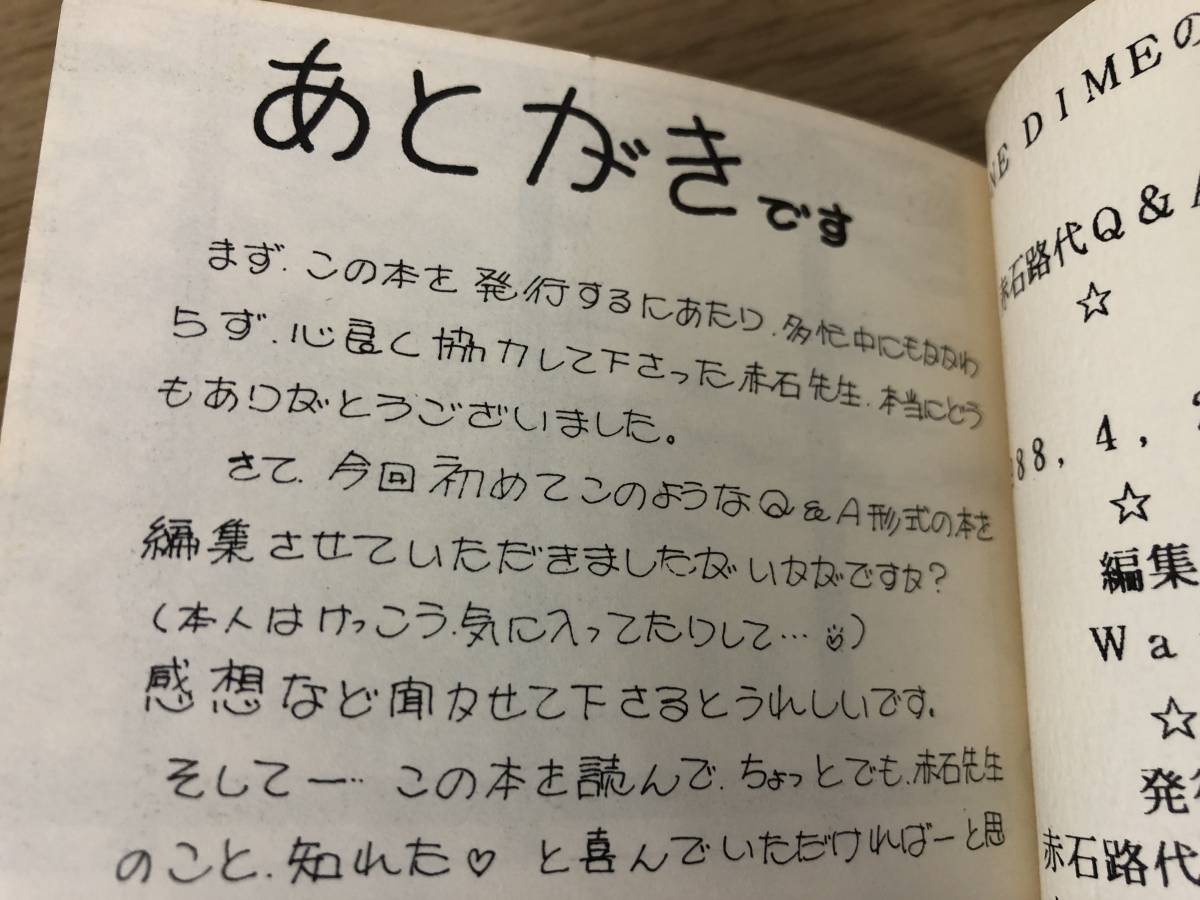 あとがきです
まず.この本を発行するにあたり.多忙中にもかかわ
らず.心良く協力して下さった赤石先生.本当にどう
もありがとうございました。
さて.今回初めてこのようなQ&A形式の本を
編集させていただきましたがいかがですか?
(本人はけっこう.気に入ってたりして…)
感想など聞かせて下さるとうれしいです.
そしてー…この本を読んで.ちょっとでも.赤石先生
のこと.知れた♡と喜んでいただければーと思
NE DIMEの
赤石路代Q&A
☆
88, 4,
☆
編集
Wa
☆
発行
赤石路代